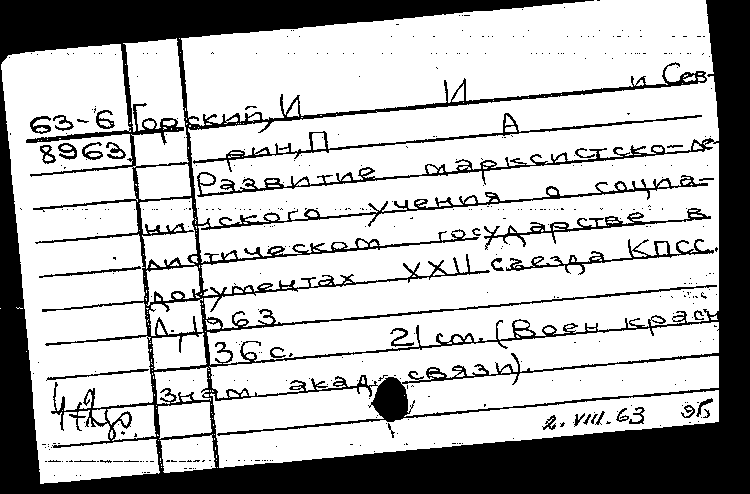 63-6 Горский, И И и Сев-
8963. рин, П А
Развитие марксистско-ле-
нинского учения о социа-
листическом государстве в
документах XXII съезда КПСС.
Л., 1963
36 с. 21 см. (Воен. красн
знам. акад. связи).
2.VIII.63 эБ